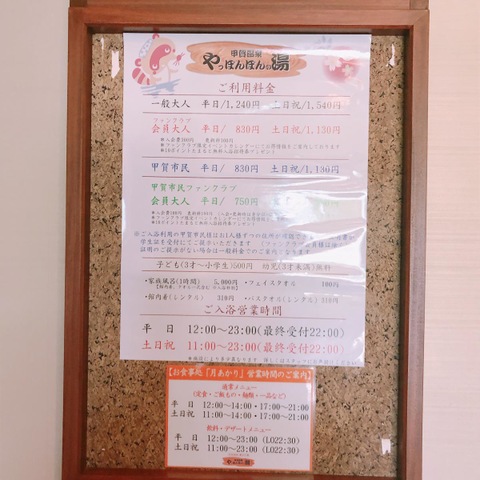 甲賀温泉
やっぽんぽんの湯
ご利用料金
一般大人 平日/1,240円 土日祝/1,540円
ファンクラブ
会員大人 平日/ 830円 土日祝/1,130円
甲賀市民 平日/ 830円 土日祝/1,130円
甲賀市民ファンクラブ
会員大人 平日/ 750円
子ども(3才～小学生)600円 幼児(3才未満)無料
・家族風呂(1時間) 5,000円 ・フェイスタオル 100円
・館内着(レンタル) 310円 ・バスタオル(レンタル) 310円
ご入浴営業時間
平 日 12:00～23:00(最終受付22:00)
土日祝 11:00～23:00(最終受付22:00)
【お食事処「月あかり」営業時間のご案内】
通常メニュー
(定食・ご飯もの・麺類・一品など)
平 日 12:00～14:00・17:00～21:00
土日祝 11:00～14:00・17:00～21:00
飲料・デザートメニュー
平 日 12:00～23:00(LO22:30)
土日祝 11:00～23:00(LO22:30)